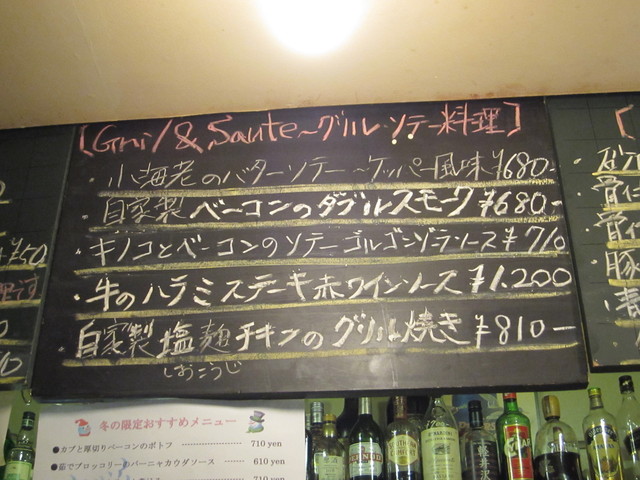 [Grill & Saute～グリル・ソテー料理]
・小海老のバターソテー～ケッパー風味¥680-
・自家製ベーコンのダブルスモーク¥680-
・キノコとベーコンのソテーゴルゴンゾーラソース¥710
・牛のハラミステーキ赤ワインソース¥1.200
・自家製塩麹チキンのグリル焼き¥810-
しおこうじ
冬の限定おすすめメニュー
●カブと厚切りベーコンのポトフ 710 yen
●茹でブロッコリーのバーニャカウダソース 610 yen
710 yen
骨付
骨付
豚